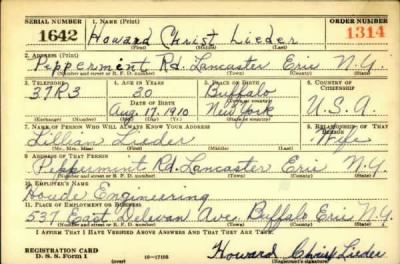 SERIAL NUMBER 1. NAME (Print) ORDER NUMBER
1642 Howard Christ Lieder 1314
(First) (Middle) (Last)
2. ADDRESS (Print)
Peppermint Rd. Lancaster Erie N.Y.
(Number and street or R. F. D. number) (Town) (County) (State)
3. TELEPHONE 4. AGE IN YEARS 5. PLACE OF BIRTH 6. COUNTRY OF CITIZENSHIP
37R3 30 Buffalo
DATE OF BIRTH (Town or county)
Aug. 17, 1910 New York U.S.A.
(Exchange) (Number) (Mo.) (Day) (Yr.) (State or country)
7. NAME OF PERSON WHO WILL ALWAYS KNOW YOUR ADDRESS 8. RELATIONSHIP OF THAT PERSON
Lillian Lieder Wife
(Mr., Mrs., Miss) (First) (Middle) (Last)
9. ADDRESS OF THAT PERSON
Peppermint Rd. Lancaster Erie N.Y.
(Number and street or R. F. D. number) (Town) (County) (State)
10. EMPLOYER'S NAME
Houde Engineering
11. PLACE OF EMPLOYMENT OR BUSINESS
537 East Delevan Ave. Buffalo Erie N.Y.
(Number and street or R. F. D. number) (Town) (County) (State)
I AFFIRM THAT I HAVE VERIFIED ABOVE ANSWERS AND THAT THEY ARE TRUE.
REGISTRATION CARD
D. S. S. Form 1 16—17105 Howard Christ Lieder
(Registrant's signature)